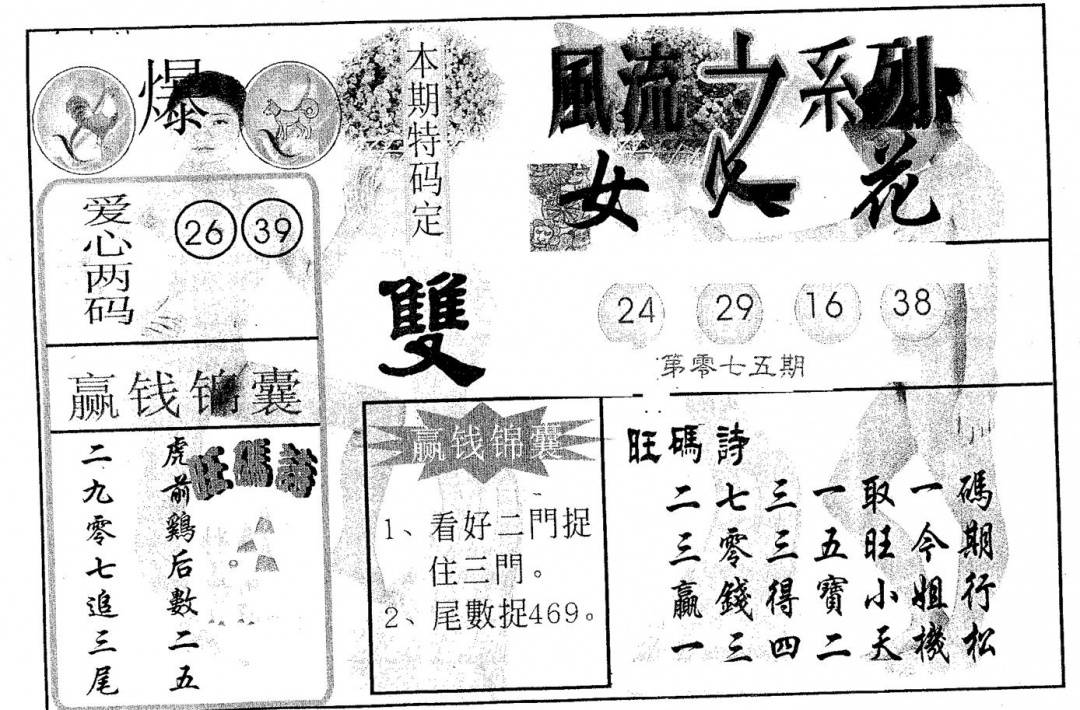 爆
本期特码定
雙
風流之系列
女花
爱心两码
26 39
24 29 16 38
第零七五期
赢钱锦囊
旺碼詩
虎前鷄后數二五
二九零七追三尾
赢钱锦囊
1、看好二門捉
住三門。
2、尾數捉469。
旺碼詩
二七三一取一碼
三零三五旺今期
贏錢得寶小姐行
一三四二天機松